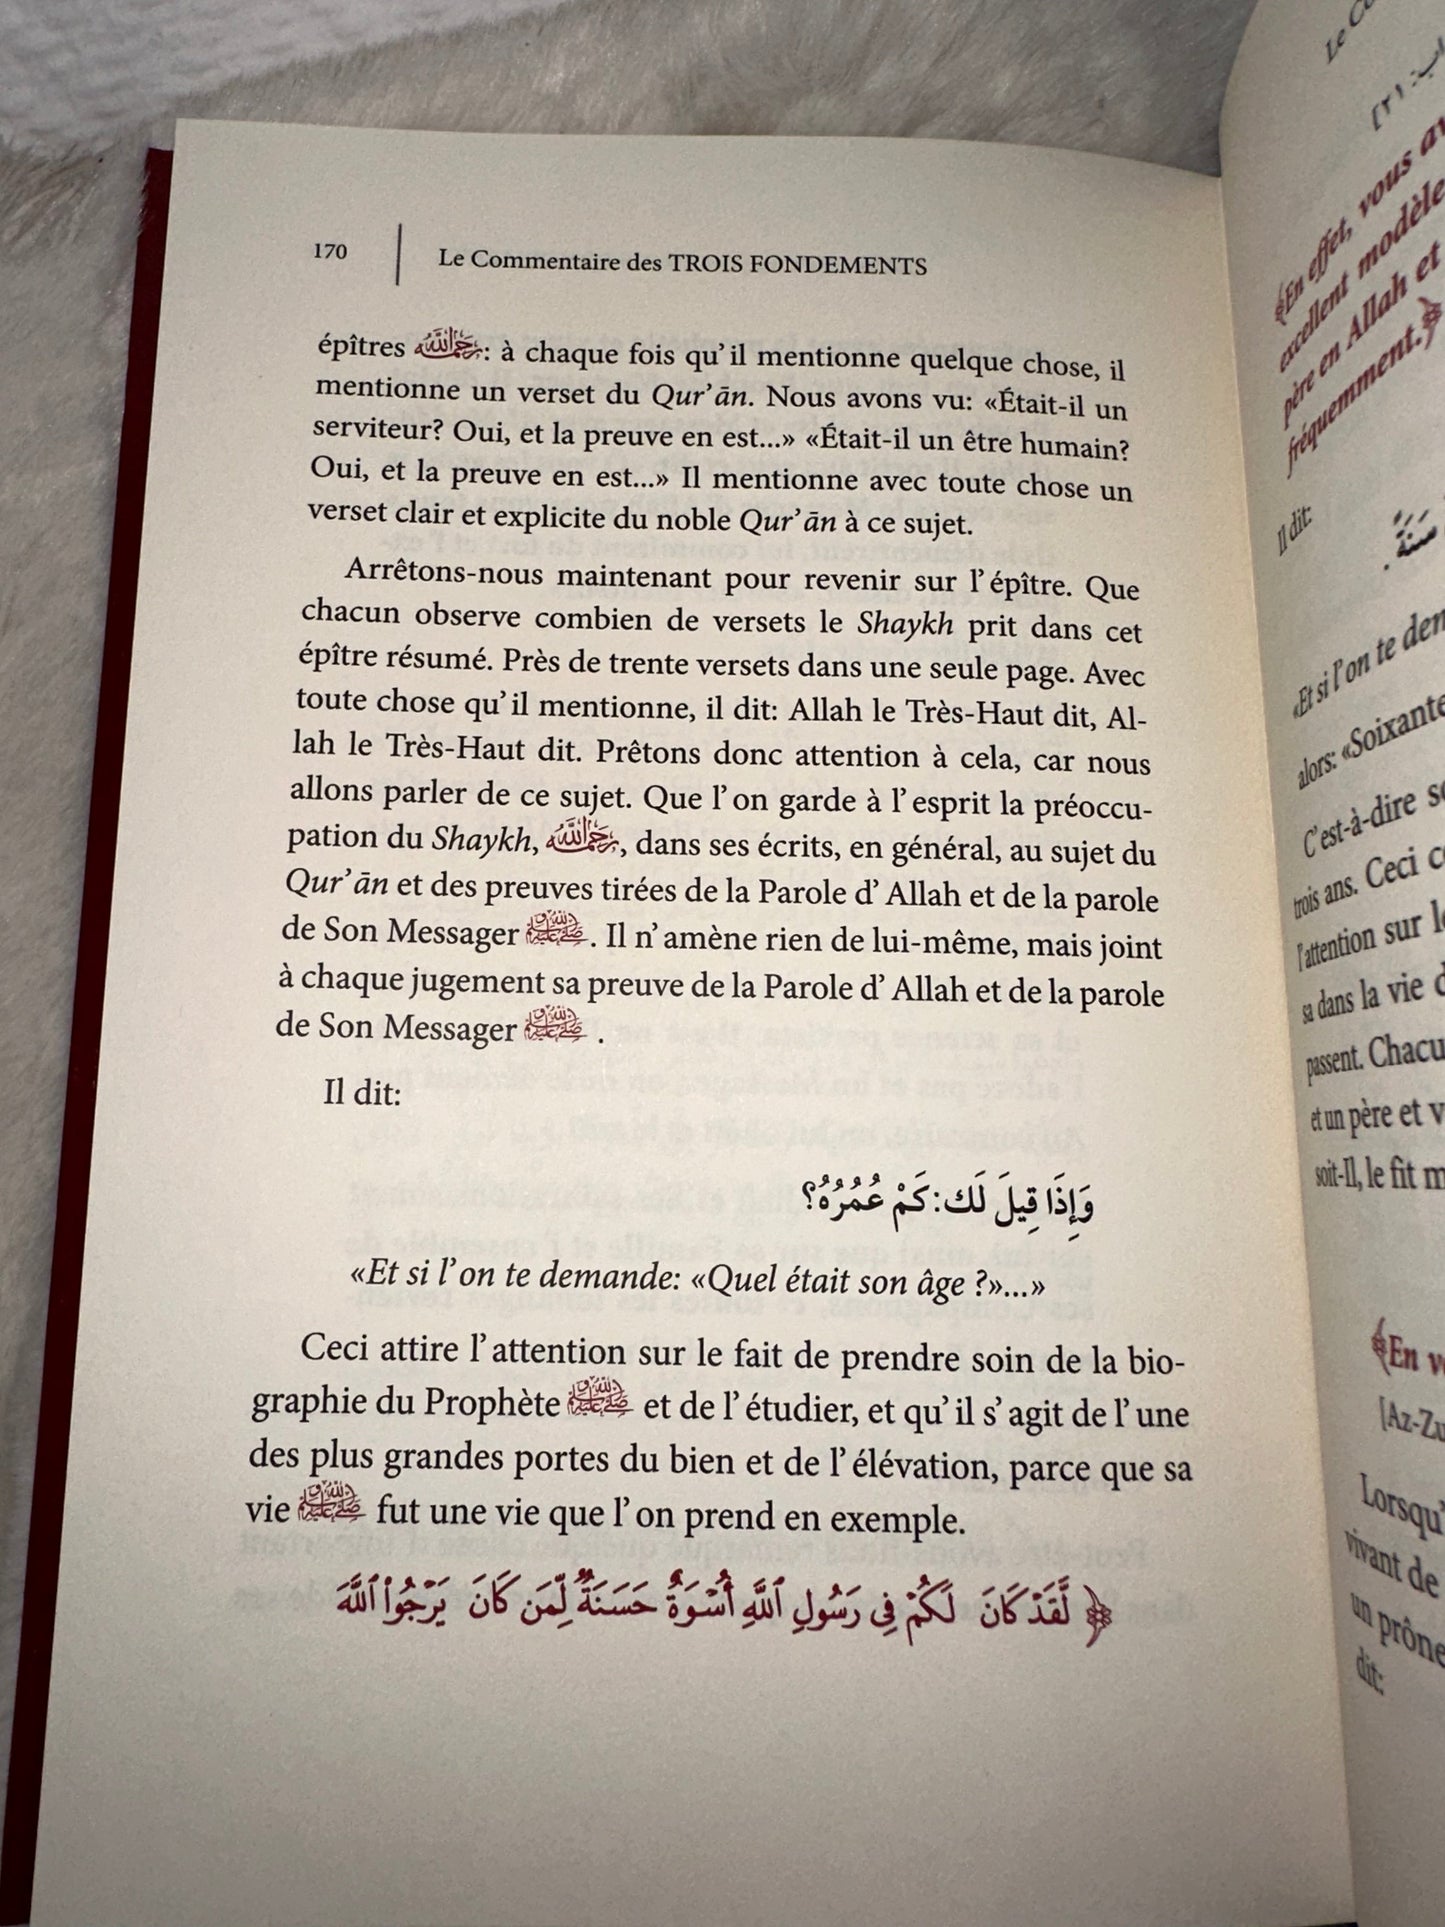 170
Le Commentaire des TROIS FONDEMENTS
épîtres رحمه الله: à chaque fois qu'il mentionne quelque chose, il
mentionne un verset du Qur'ān. Nous avons vu: «Était-il un
serviteur? Oui, et la preuve en est...» «Était-il un être humain?
Oui, et la preuve en est...» Il mentionne avec toute chose un
verset clair et explicite du noble Qur'ān à ce sujet.
Arrêtons-nous maintenant pour revenir sur l'épître. Que
chacun observe combien de versets le Shaykh prit dans cet
épître résumé. Près de trente versets dans une seule page. Avec
toute chose qu'il mentionne, il dit: Allah le Très-Haut dit, Al-
lah le Très-Haut dit. Prêtons donc attention à cela, car nous
allons parler de ce sujet. Que l'on garde à l'esprit la préoccu-
pation du Shaykh, رحمه الله, dans ses écrits, en général, au sujet du
Qur'ān et des preuves tirées de la Parole d'Allah et de la parole
de Son Messager ﷺ. Il n'amène rien de lui-même, mais joint
à chaque jugement sa preuve de la Parole d'Allah et de la parole
de Son Messager ﷺ .
Il dit:
وَإِذَا قِيلَ لَك: كَمْ عُمُرُهُ؟
«Et si l'on te demande: «Quel était son âge ?»...»
Ceci attire l'attention sur le fait de prendre soin de la bio-
graphie du Prophète ﷺ et de l'étudier, et qu'il s'agit de l'une
des plus grandes portes du bien et de l'élévation, parce que sa
vie ﷺ fut une vie que l'on prend en exemple.
﴿ لَّقَدْ كَانَ لَكُمْ فِي رَسُولِ ٱللَّهِ أُسْوَةٌ حَسَنَةٌ لِّمَن كَانَ يَرْجُوا۟ ٱللَّهَ
Le
٢١]
﴾En effet, vous
excellent modèle
père en Allah et
fréquemment.﴿
Il dit:
سَنَةً.
«Et si l'on te
alors: «Soixante
C'est-à-dire
trois ans. Ceci
l'attention sur
sa dans la vie
passent.
et un père et
soit-Il, le fit
﴾En
[Az-
vivant de
un prône
dit: